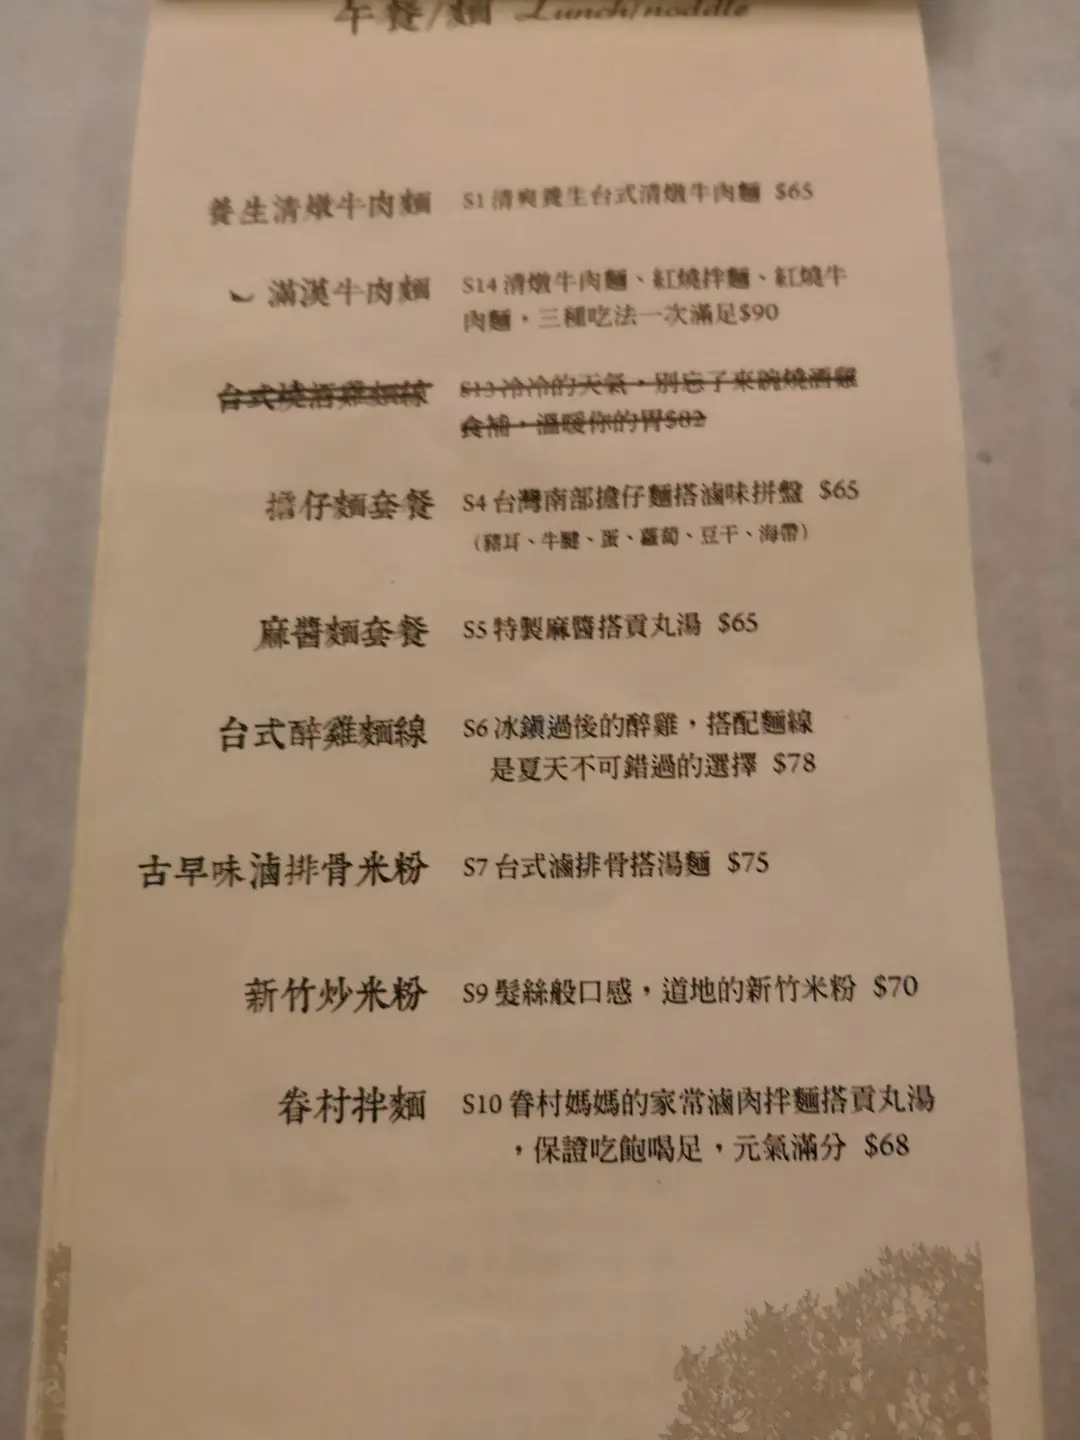 午餐/麵 Lunch/noddle
養生清燉牛肉麵 S1 清爽養生台式清燉牛肉麵 $65
滿漢牛肉麵 S14 清燉牛肉麵、紅燒拌麵、紅燒牛
肉麵，三種吃法一次滿足$90
台式燒酒雞麵線 S13 冷冷的天氣，別忘了來碗燒酒雞
食補，溫暖你的胃$82
擔仔麵套餐 S4 台灣南部擔仔麵搭滷味拼盤 $65
（豬耳、牛腱、蛋、蘿蔔、豆干、海帶）
麻醬麵套餐 S5 特製麻醬搭貢丸湯 $65
台式醉雞麵線 S6 冰鎮過後的醉雞，搭配麵線
是夏天不可錯過的選擇 $78
古早味滷排骨米粉 S7 台式滷排骨搭湯麵 $75
新竹炒米粉 S9 髮絲般口感，道地的新竹米粉 $70
眷村拌麵 S10 眷村媽媽的家常滷肉拌麵搭貢丸湯
，保證吃飽喝足，元氣滿分 $68